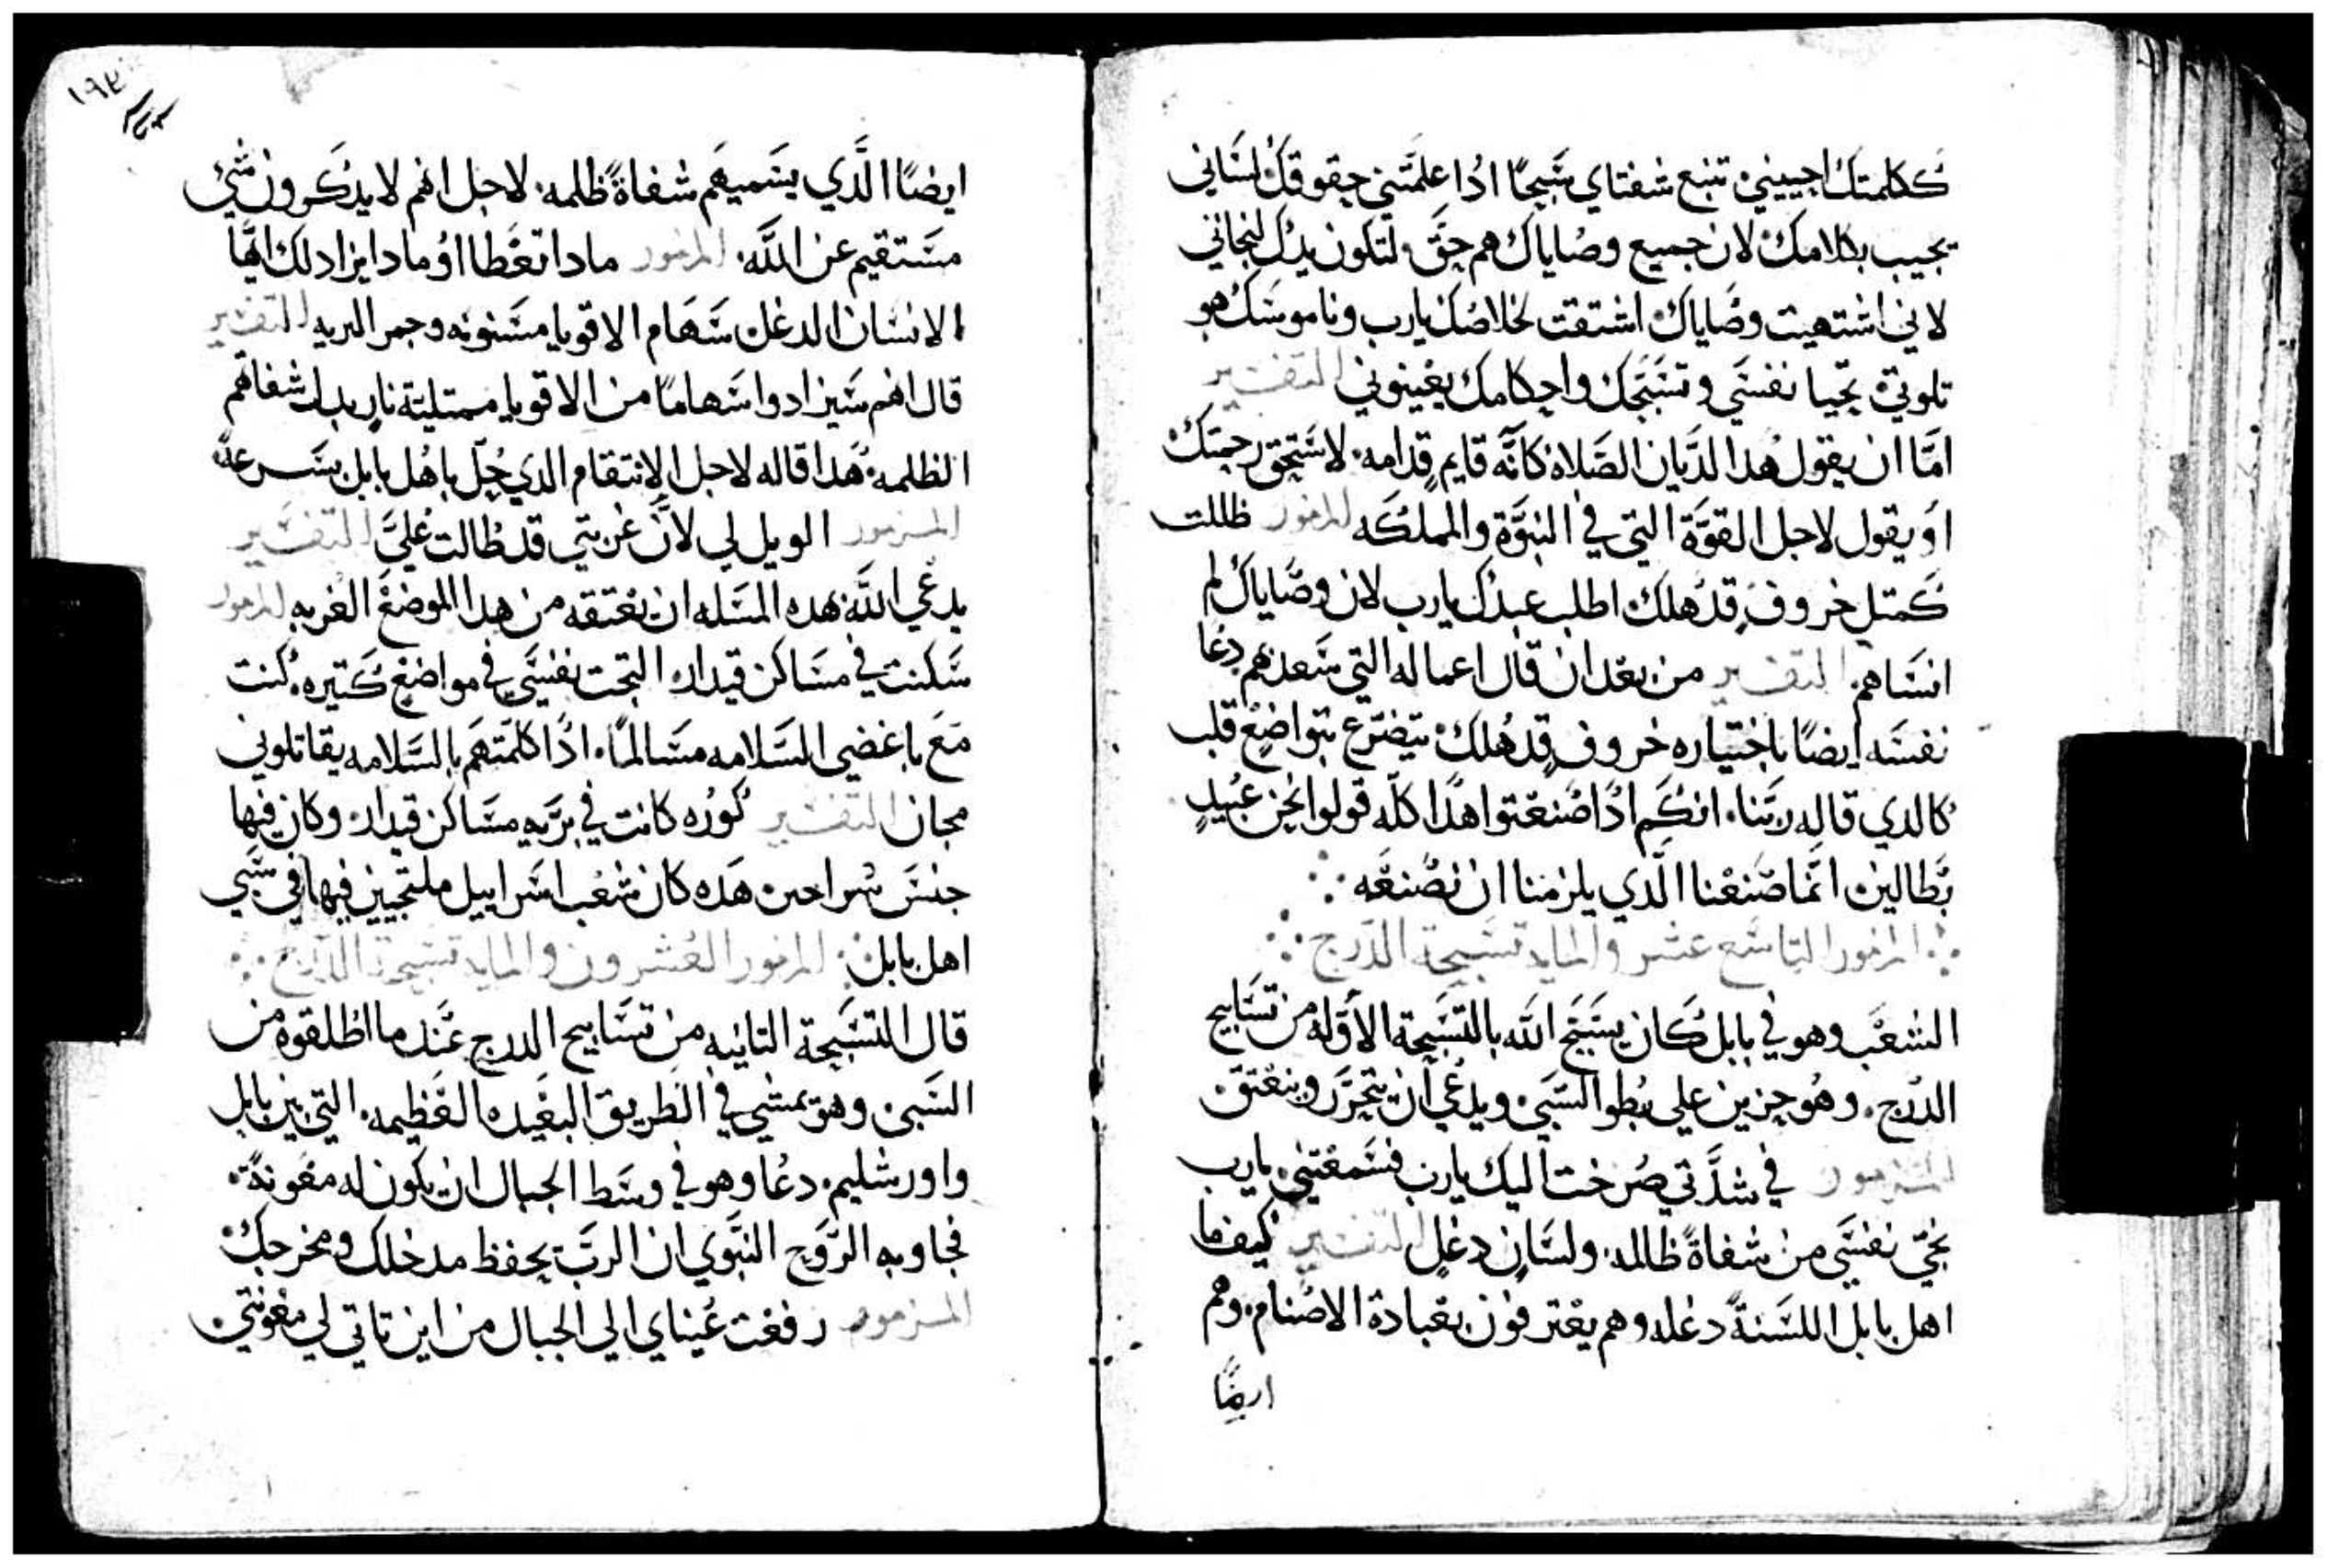 ككلمتك اجييني تنبع شفتاي تسبيحًا ادًا علمتني حقوقك لساني
يجيب بكلامك لان جميع وصاياك هم حق لتكون يدك لنجاتي
لاني اشتهيت وصاياك اشتقت لخلاصك يارب وناموسك هو
تلوتي تحيا نفسي وتسبحك واحكامك يغينوني التفسير
امّا ان يقول هدا الديان الصلاة كانّه قايم قدامه لاستحق رحمتك
او يقول لاجل القوّة التي في النبوّة والمملكه المزمور ظللت
كمتل خروف قد هلك اطلب عبدك يارب لان وصاياك لم
انساهم التفسير من بعد ان قال اعماله التي سعدهم دعا
نفسه ايضًا باختياره خروف قد هلك يتضرع بتواضع قلب
كالدي قاله ربّنا انكم ادًا صنعتوا هدا كلّه قولوا نحن عبيدٍ
بطالين انّما صنعنا الّدي يلزمنا ان نصنعه
المزمور التاسع عشر والمايه تسبحة الدرج
الشعب وهو في بابل كان يسبّح الله بالتسبحة الاوّله من تسابيح
الدرج وهو حزين علي بطو السبي ويدعي ان يتحرّر وينعتق
المزمور في شدّتي صرخت اليك يارب فسمعتني يارب
نجّي نفسي من شفاةً ظالمه ولسانٍ دغلٍ التفسير كيف ما
اهل بابل اللسنةً دغله وهم يعترفون بعبادة الاصنام وهم
ايضًا
١٩٤
ايضًا الّدي يسميهم شفاةً ظلمه لاجل انهم لا يدكرون شي
مستقيم عن اللّه المزمور مادا تعطا او مادا يزاد لك ايها
الانسان الدغل سهام الاقويا مسنونه وجمر البريه التفسير
قال انهم سيزادوا سهامًا من الاقويا ممتلية نار بدل شفاهم
الظلمه هدا قاله لاجل الانتقام الدي حلّ باهل بابل بسرعة
المزمور الويل لي لانّ غربتي قد طالت عليّ التفسير
يدعي اللّه بهده المسله ان يعتقه من هدا الموضع الغربه المزمور
سكنت في مساكن قيدار التجت نفسي في مواضع كتيره كنت
مع باغضي السلامه مسالمًا ادًا كلمتهم بالسلامه يقاتلوني
مجان التفسير كوره كانت في بريه مساكن قيدار وكان فيها
جنس هده كان شعب اسراييل ملتجيين فيها في سبي
اهل بابل المزمور العشرون والمايه تسبحة الدرج
قال التسبحة التانيه من تسابيح الدرج عند ما اطلقوه من
السبي وهو يمشي في الطريق البعيده العظيمه التي بين بابل
واورشليم دعا وهو في وسط الجبال ان يكون له معونةً
فجاوبه الروح النبوي ان الرب يحفظ مدخلك ومخرجك
المزمور رفعت عيناي الي الجبال من اين تاتي لي معونتي